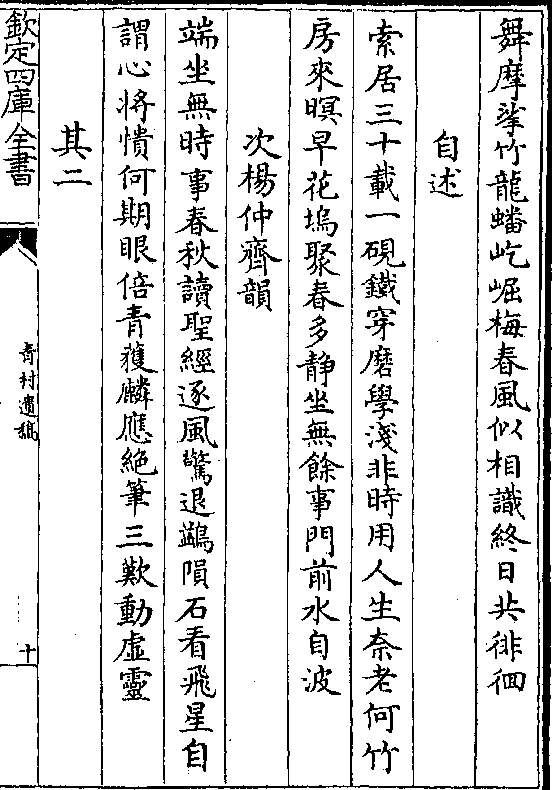 舞摩挲竹龍蟠屹崛梅春風似相識終日共徘徊
自述
索居三十載一硯鐵穿磨學淺非時用人生奈老何竹
房來暝早花塢聚春多静坐無餘事門前水自波
次楊仲齊韻
端坐無時事春秋讀聖經逐風驚退鷁隕石看飛星自
謂心將憒何期眼倍青獲麟應絶筆三歎動虛靈
其二
欽定四庫全書
青村遺稿
十